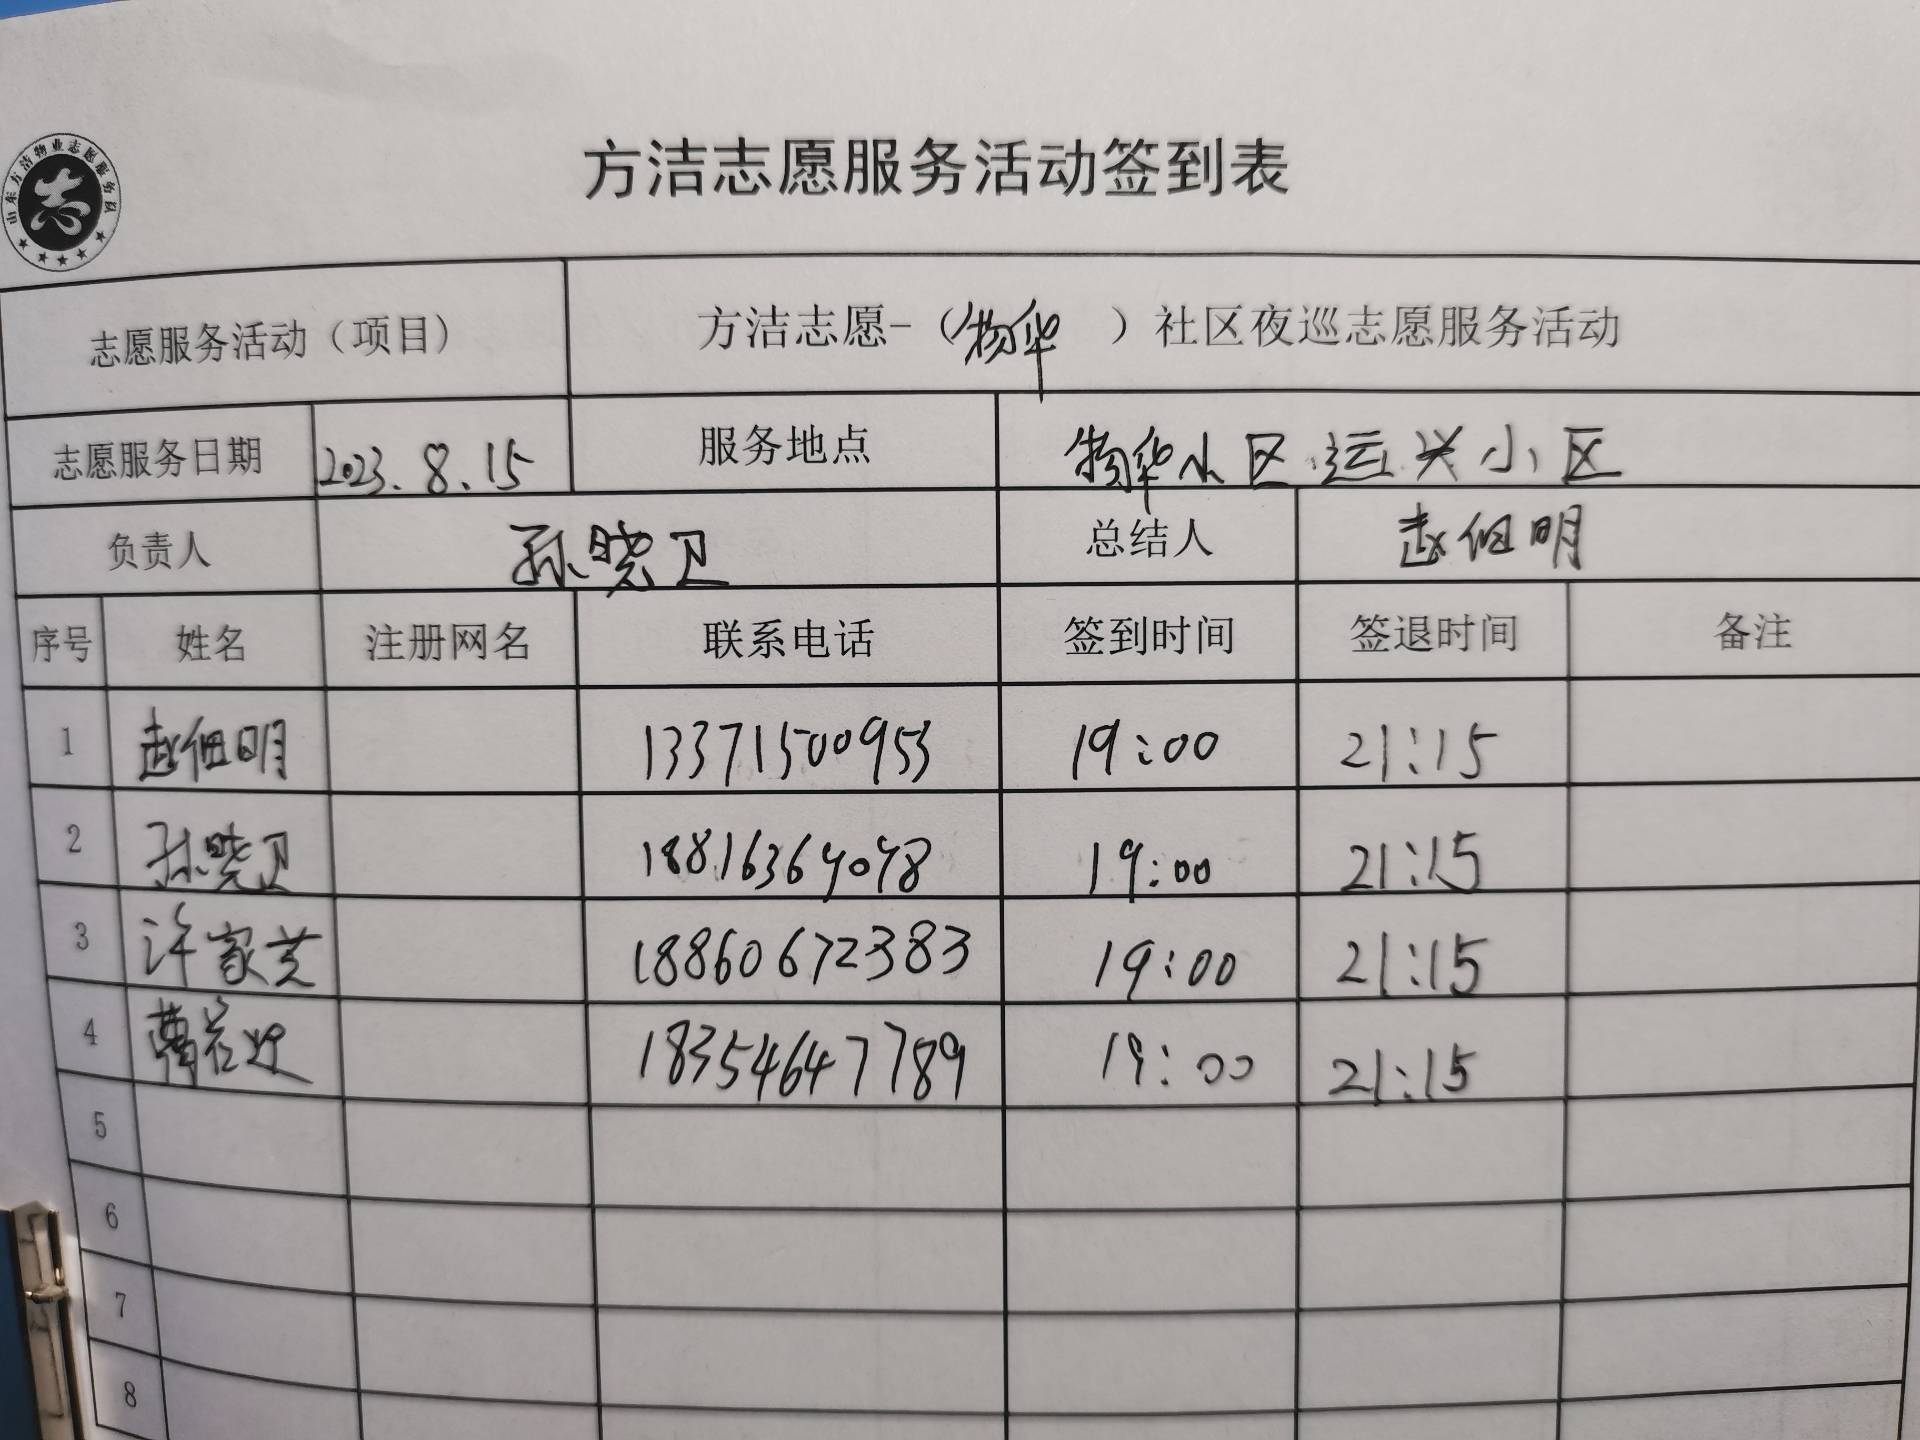 山东方洁物业志愿服务队
志
方洁志愿服务活动签到表
志愿服务活动（项目） 方洁志愿-（物华 ）社区夜巡志愿服务活动
志愿服务日期 2023.8.15 服务地点 物华小区 运兴小区
负责人 孙晓卫 总结人 赵佃明
序号 姓名 注册网名 联系电话 签到时间 签退时间 备注
1 赵佃明 13371500953 19:00 21:15
2 孙晓卫 18816364048 19:00 21:15
3 许家芝 18860672383 19:00 21:15
4 曹 18354647789 19:00 21:15
5
6
7
8